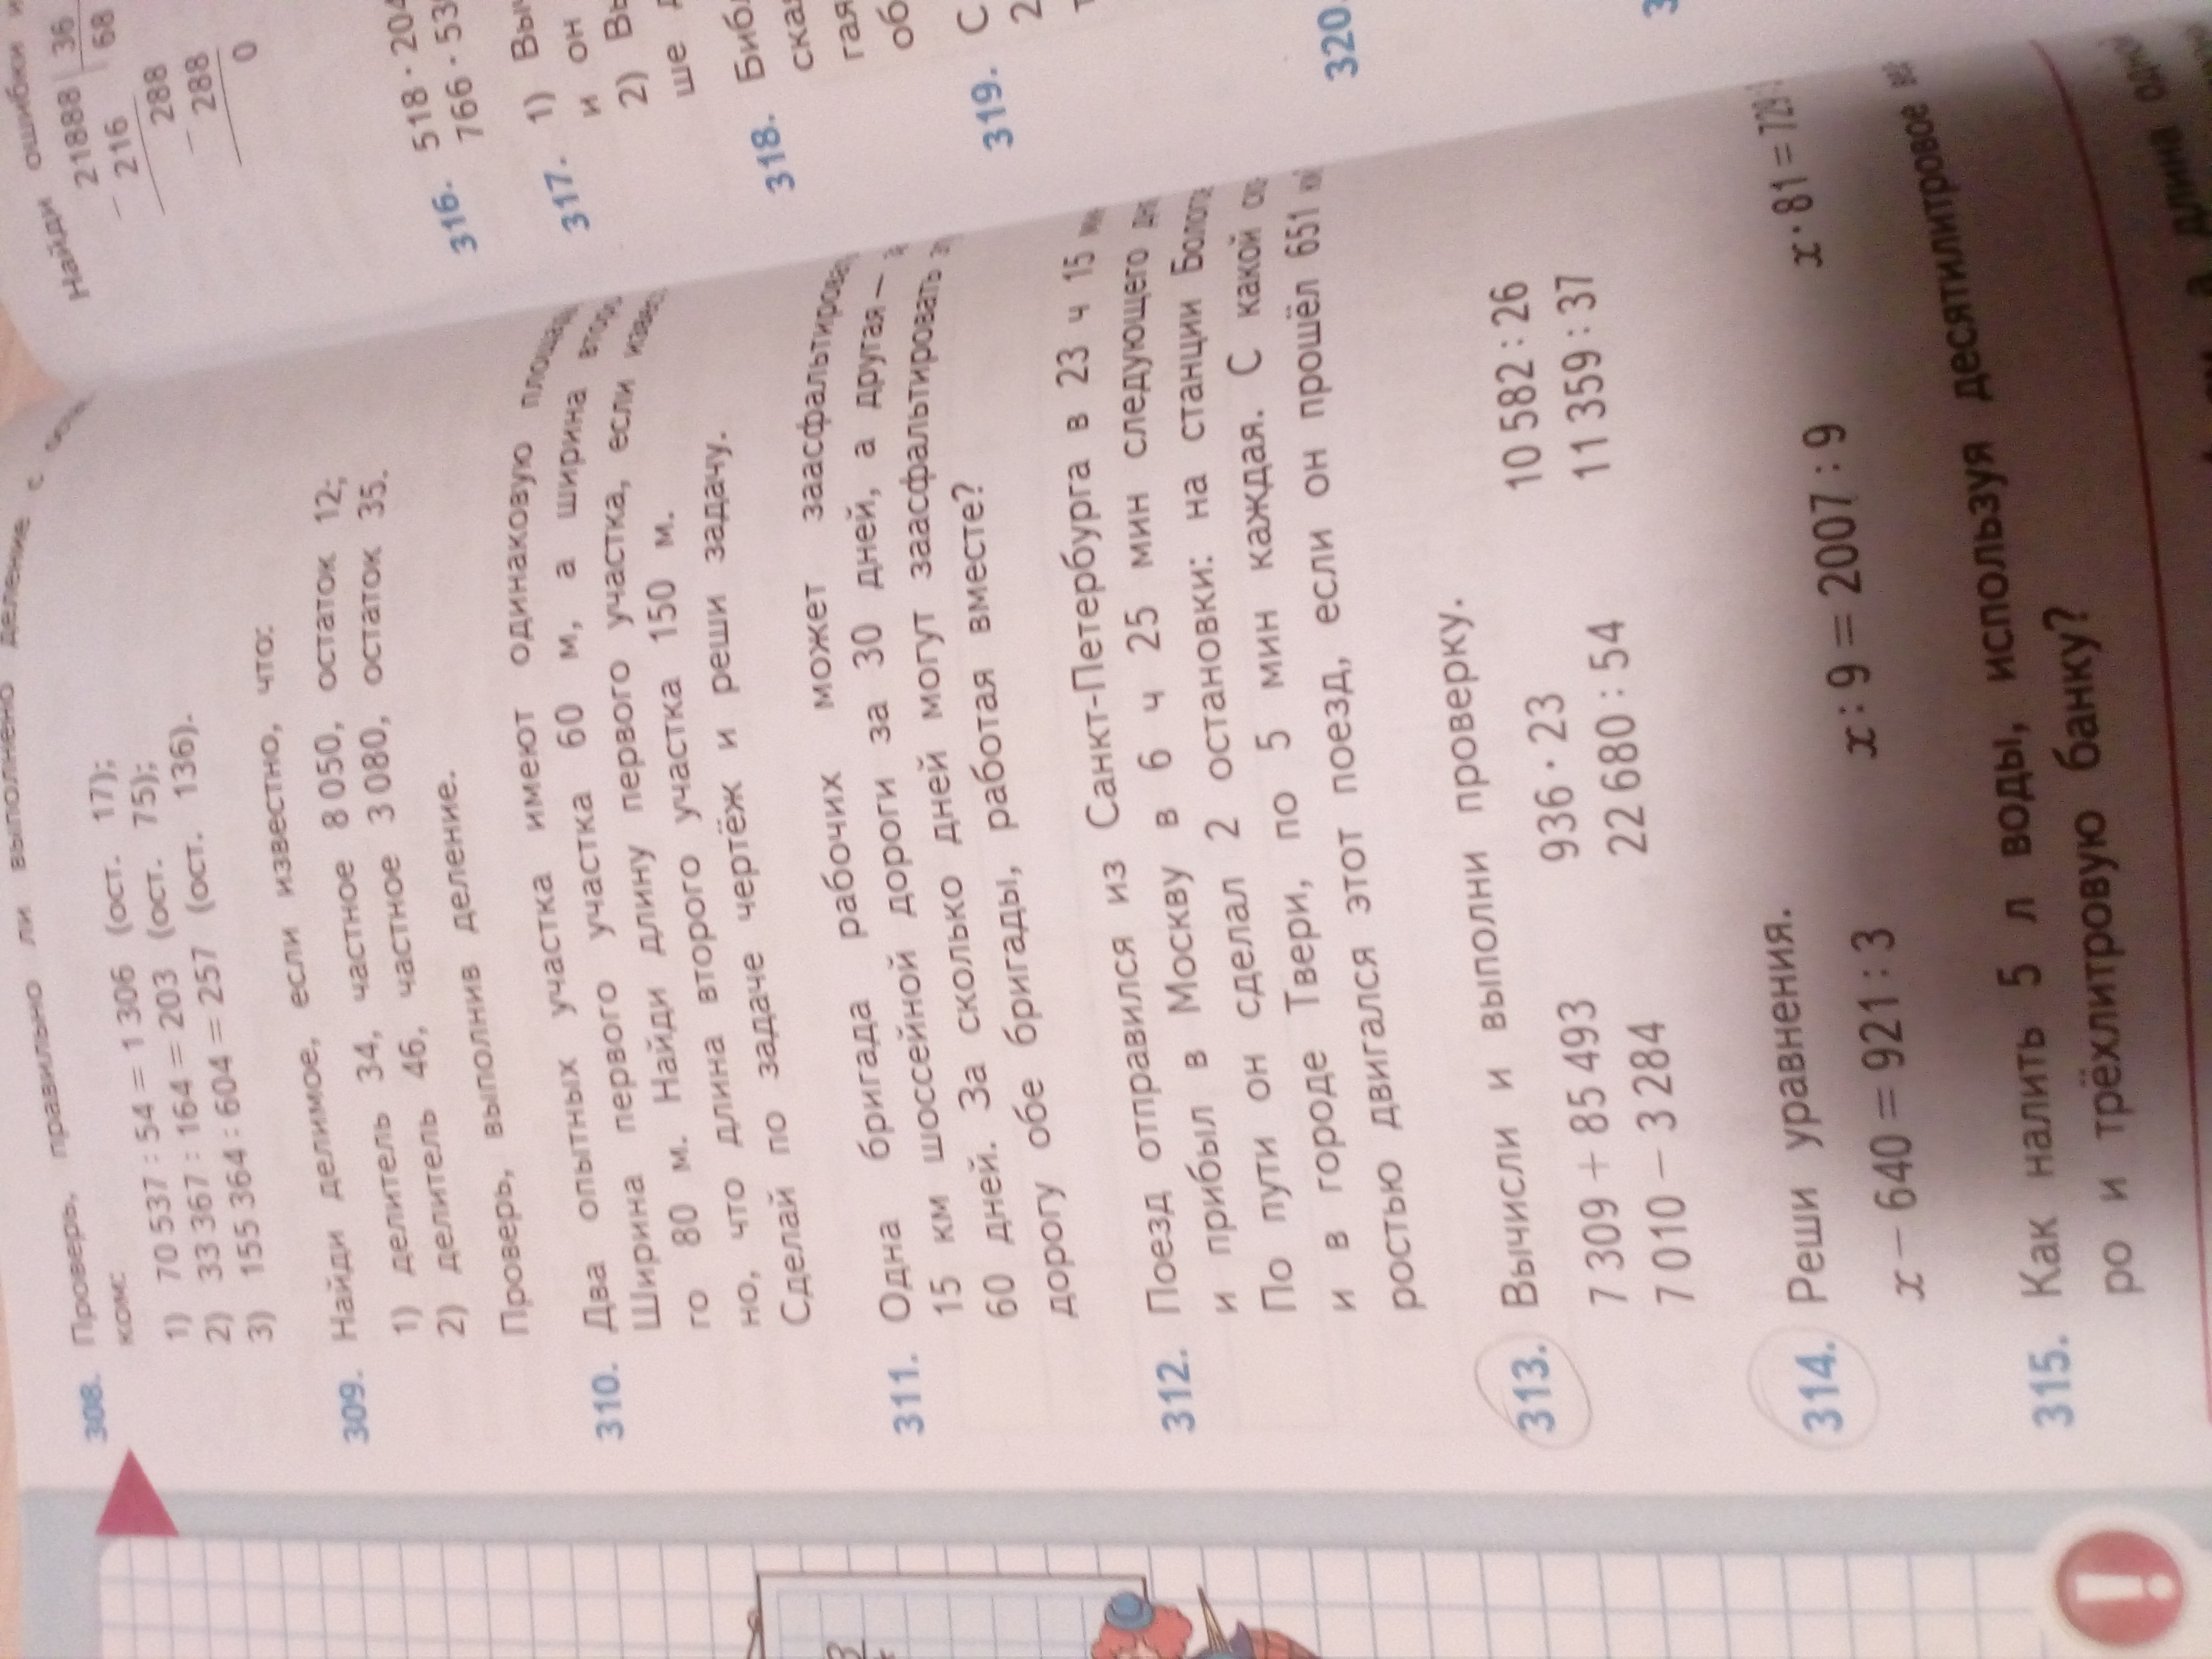 308. Проверь, правильно ли выполнено деление с
ком:
1) 70 537 : 54 = 1 306 (ост. 17);
2) 33 367 : 164 = 203 (ост. 75);
3) 155 364 : 604 = 257 (ост. 136).
309. Найди делимое, если известно, что:
1) делитель 34, частное 8 050, остаток 12;
2) делитель 46, частное 3 080, остаток 35.
Проверь, выполнив деление.
310. Два опытных участка имеют одинаковую
Ширина первого участка 60 м, а ширина
го 80 м. Найди длину первого участка, если
но, что длина второго участка 150 м.
Сделай по задаче чертёж и реши задачу.
311. Одна бригада рабочих может
15 км шоссейной дороги за 30 дней, а другая —
60 дней. За сколько дней могут заасфальтировать
дорогу обе бригады, работая вместе?
312. Поезд отправился из Санкт-Петербурга в 23 ч 15
и прибыл в Москву в 6 ч 25 мин следующего
По пути он сделал 2 остановки: на станции
и в городе Твери, по 5 мин каждая. С какой
ростью двигался этот поезд, если он прошёл 651
313. Вычисли и выполни проверку.
7 309 + 85 493 936 · 23 10 582 : 26
7 010 − 3 284 22 680 : 54 11 359 : 37
314. Реши уравнения.
x − 640 = 921 : 3 x : 9 = 2007 : 9 x · 81 = 729
315. Как налить 5 л воды, используя десятилитровое
ро и трёхлитровую банку?
длина
Найди ошибки
21888 | 36
− 216 | 68
288
− 288
0
316. 518 · 204
766 · 53
317. 1)
и он
2)
ше
318.
319. С
2
320.